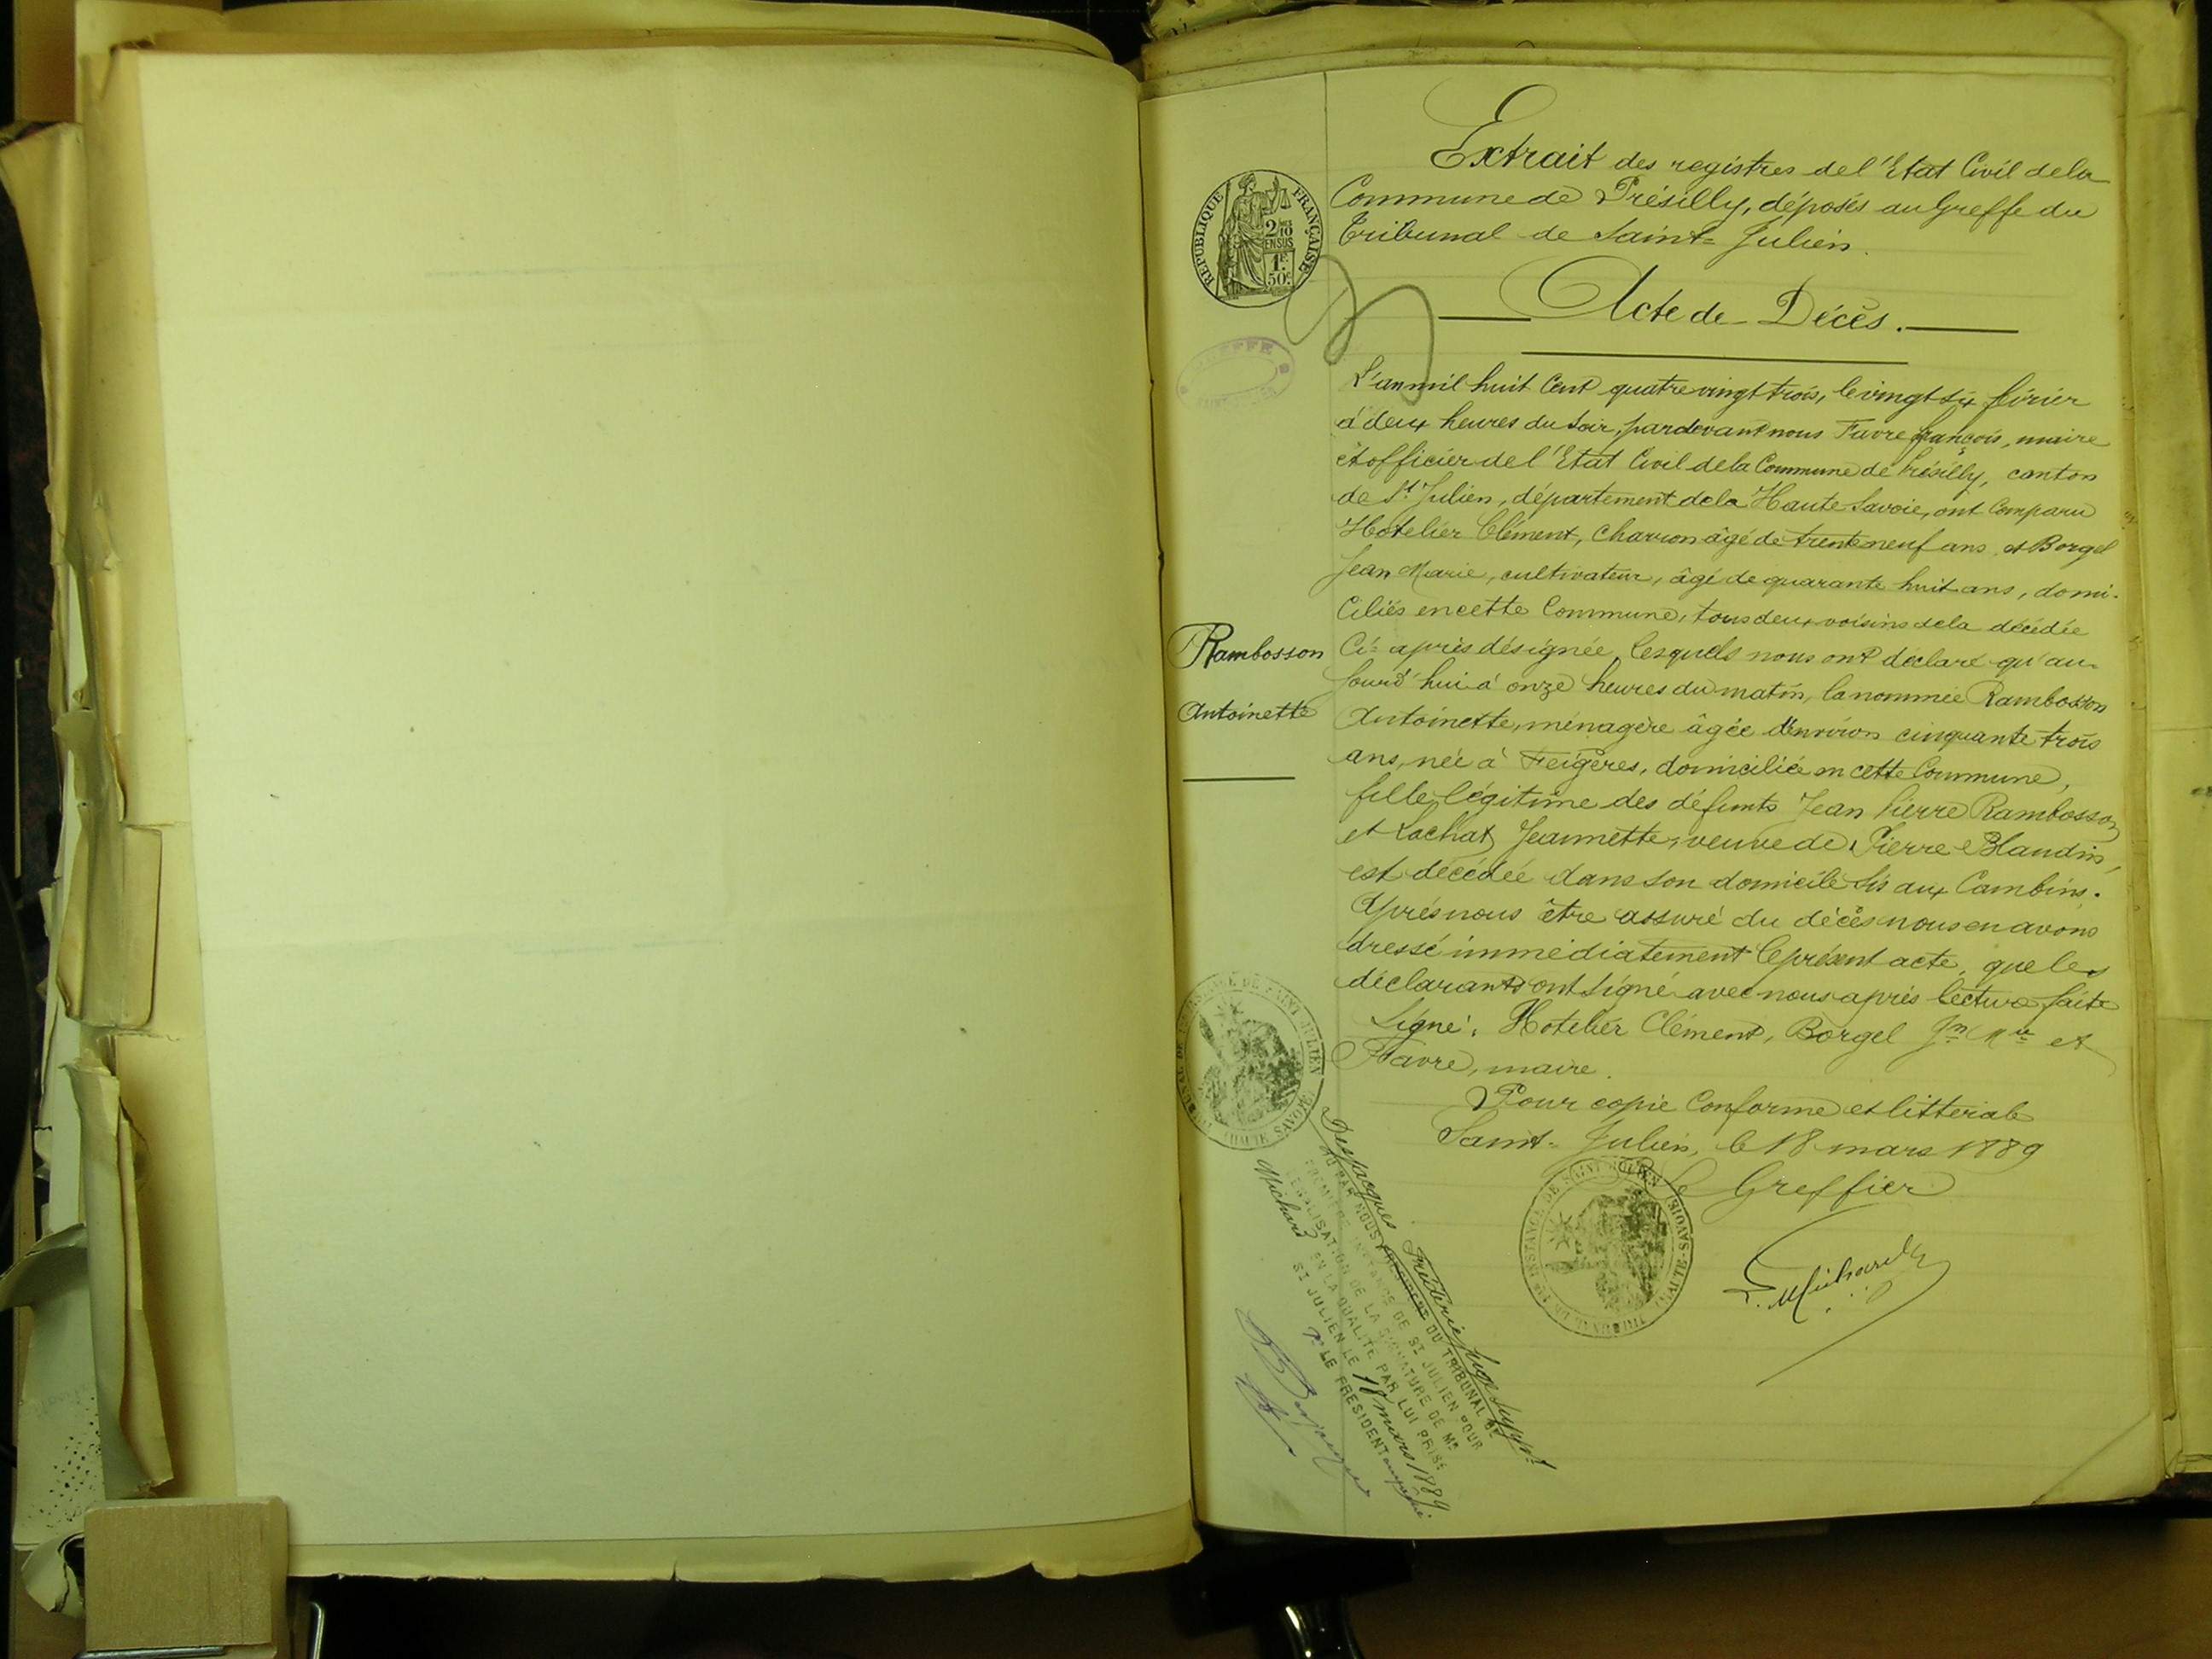 Extrait des registres de l'Etat Civil de la
Commune de Présilly, déposés au Greffe du
Tribunal de Saint-Julien.
REPUBLIQUE FRANÇAISE
2/10
EN SUS
1F.
50c.
GREFFE
Acte de Décès.
L'an mil huit Cent quatre vingt trois, le vingt six février
à deux heures du soir, pardevant nous Favre françois, maire
et officier de l'Etat Civil de la Commune de Présilly, canton
de St Julien, département de la Haute Savoie, ont Comparu
Hotelier Clément, Charron âgé de trente neuf ans et Borgel
Jean Marie, cultivateur, âgé de quarante huit ans, domi-
ciliés en cette Commune, tous deux voisins de la décédée
Rambosson
Antoinette
Ci-après désignée, lesquels nous ont déclaré qu'au-
jourd'hui à onze heures du matin, la nommée Rambosson
Antoinette, ménagère âgée d'environ cinquante trois
ans, née à Feigères, domiciliée en cette Commune,
fille légitime des défunts Jean Pierre Rambosson
et Lachat Jeannette, veuve de Pierre Blandin,
est décédée dans son domicile sis aux Cambins.
Après nous être assuré du décès nous en avons
dressé immédiatement le présent acte, que les
déclarants ont signé avec nous après lecture faite
Signé: Hotelier Clément, Borgel Jn Mie et
Favre, maire.
Pour copie Conforme et littérale
Saint-Julien, le 18 mars 1889
Le Greffier
TRIBUNAL DE 1ère INSTANCE DE SAINT JULIEN (HAUTE-SAVOIE)
TRIBUNAL DE 1ère INSTANCE DE SAINT JULIEN (HAUTE SAVOIE)
Despacques Frédéric juge suppt
VU PAR NOUS PRESIDENT DU TRIBUNAL DE
PREMIERE INSTANCE DE ST JULIEN POUR
LEGALISATION DE LA SIGNATURE DE Me
Michard EN LA QUALITE PAR LUI PRISE
ST JULIEN LE 18 mars 1889.
Pr LE PRESIDENT empêché